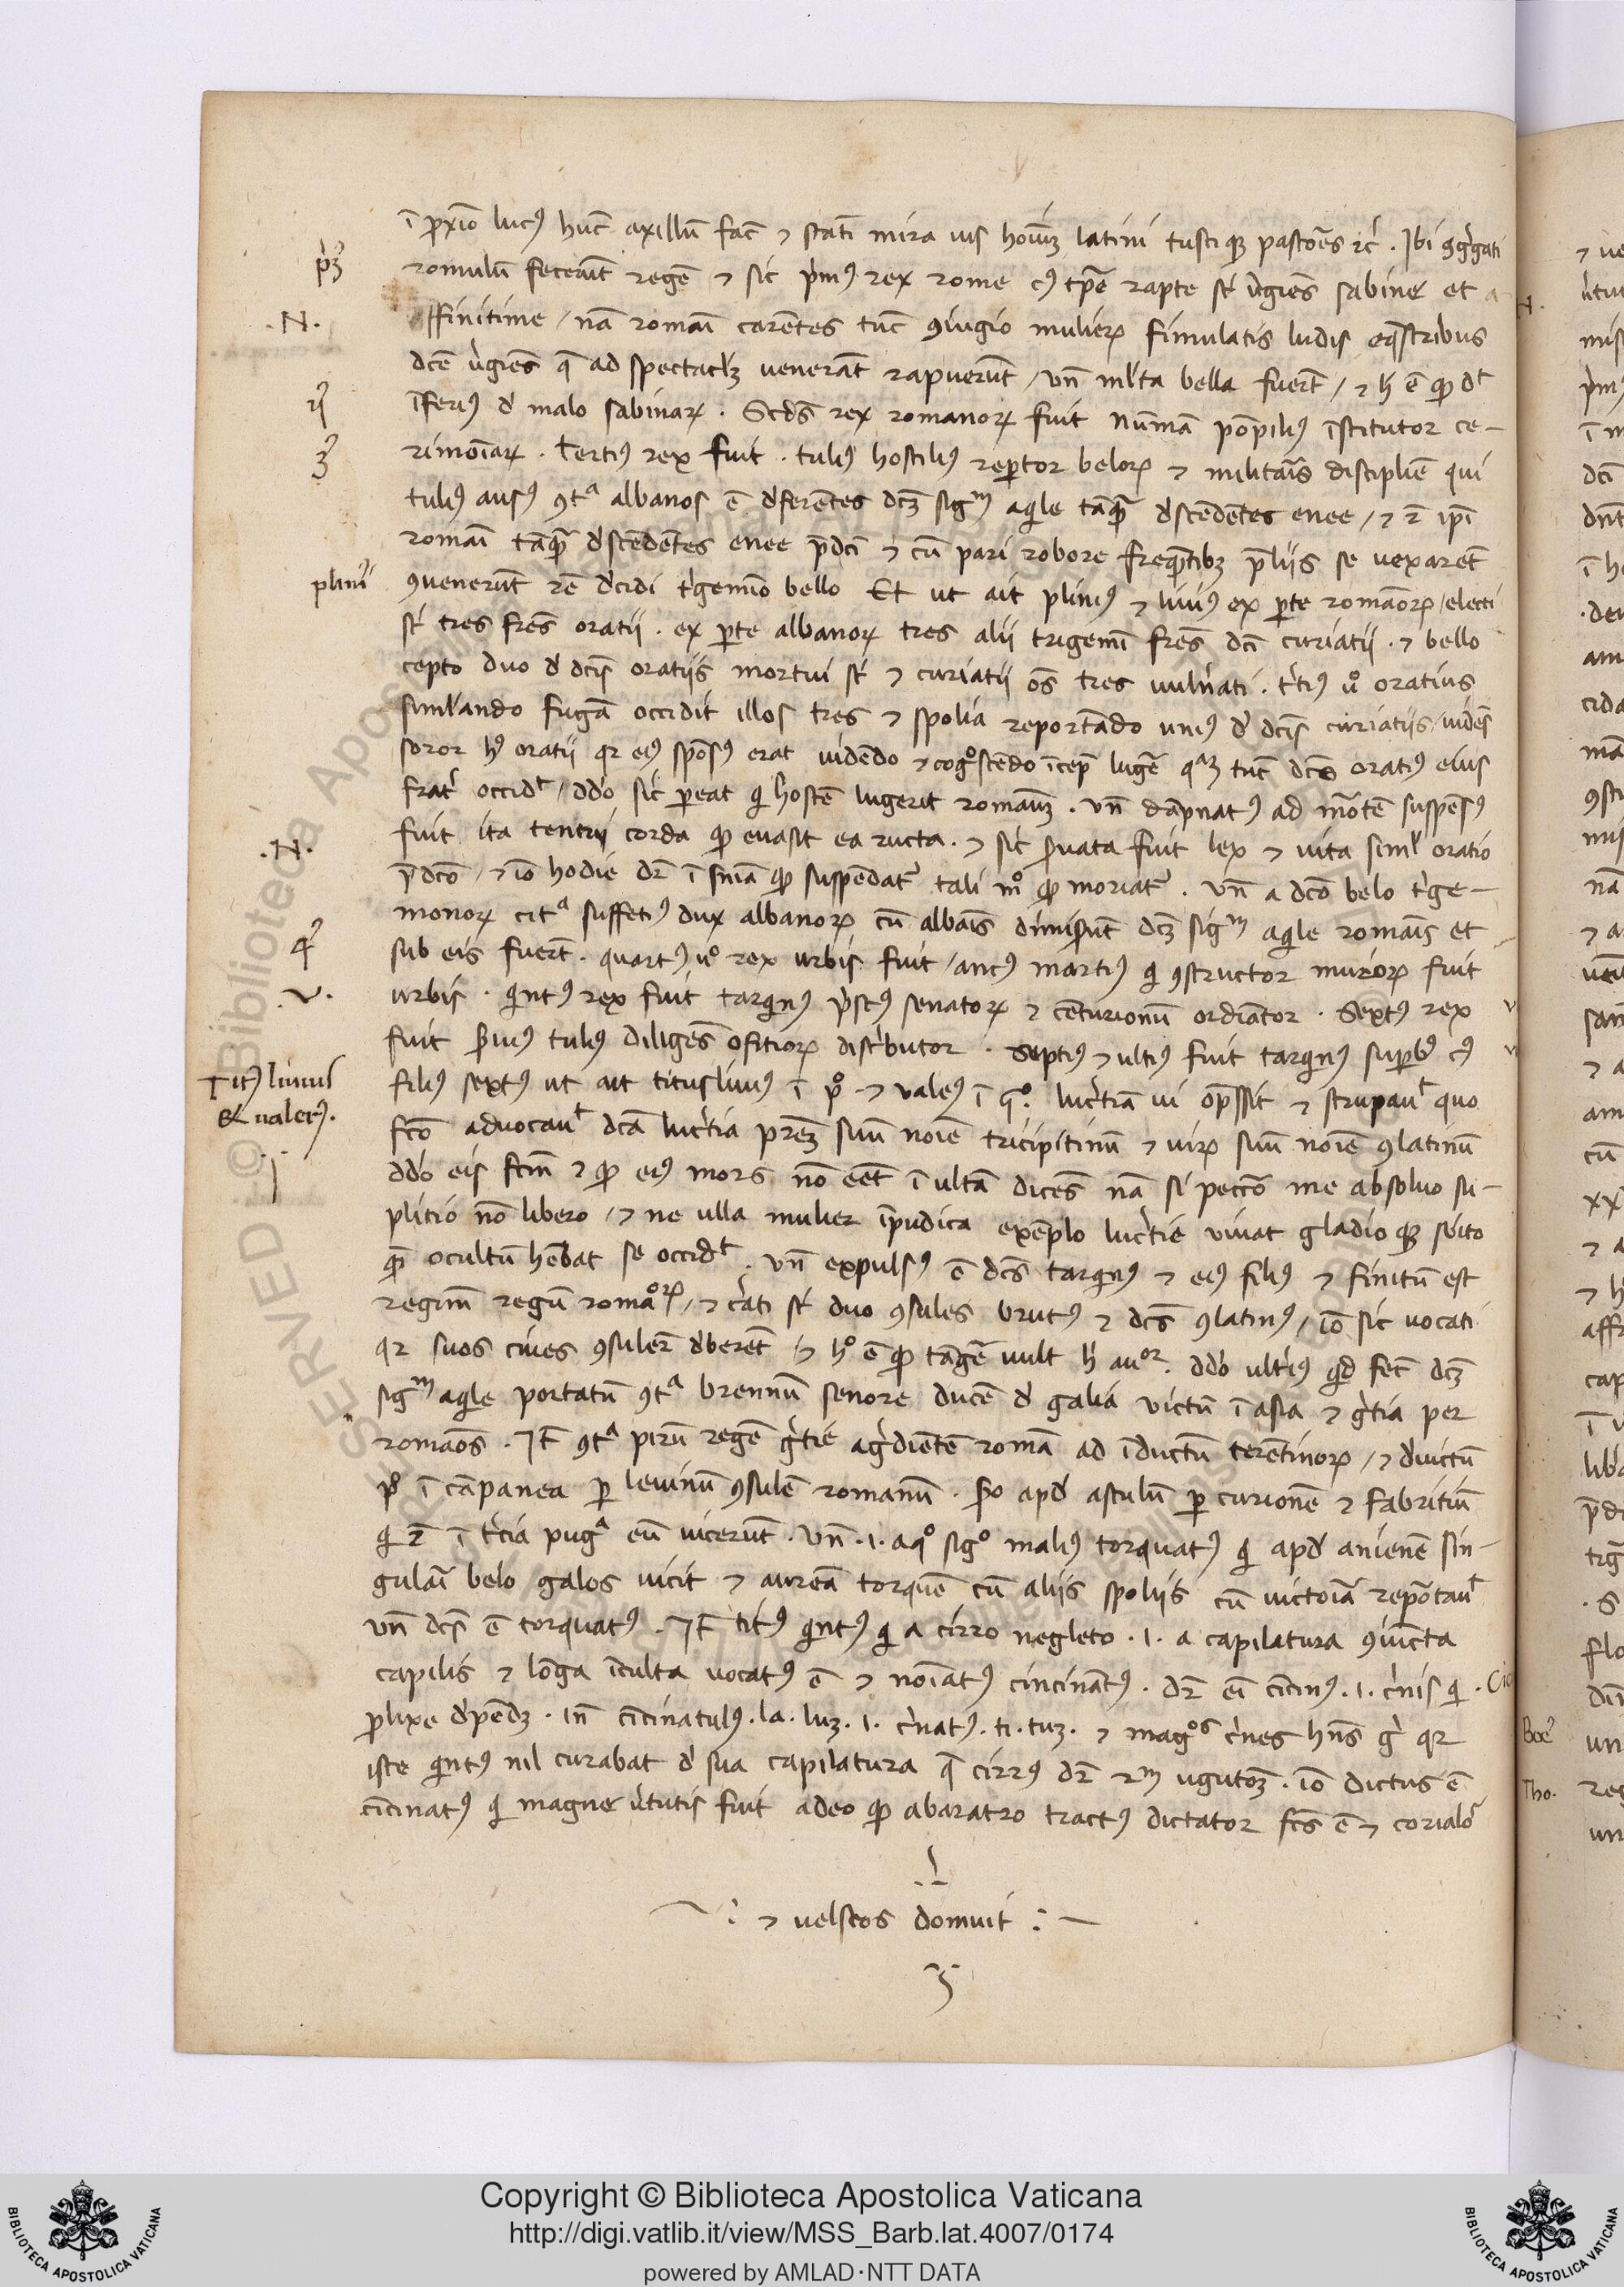 ī p̄xīo lucꝰ hūc axillū fac̄ ⁊ statī mira uis hoīuꝫ latini tusci qꝫ pastōes ⁊c̄ . Ibi ꝯg̓gati
romulū fecerūt regē ⁊ sic p̓mꝰ rex rome cꝰ tp̄e rapte sт̄ v̓gīes sabine et
affinitime / nā romāi carētes tūc ꝯiugio mulieꝝ simulatis ludis eq̄stribus
dc̄e v̓gīes q̄ ad spectaclꝫ uenerāt rapuerūt / vn̄ ml̓ta bella fuerт̄ / ⁊ h̓ ē ꝙ dт̓
īferiꝰ d̓ malo sabinaꝝ . Scd̄s rex romanoꝝ fuit nūmā pōpiliꝰ īstitutor ce-
rimōiaꝝ . Tertiꝰ rex fuit . tuliꝰ hostiliꝰ rep̱tor beloꝝ ⁊ militāis discipliē qui
tuliꝰ ausꝰ ꝯtᵃ albanos ē d̓ferētes dc̄ꝫ sigᵐ aq̓le tāꝙ̄ d̓scēdētes enee / ⁊ ꝛ̄ ip̄i
romāi tāꝙ̄ d̓scēdētes enee p̄dc̄i ⁊ cū pari robore freq̄ntibꝫ p̄liis se uexareт̄
ꝯuenerūt rē d̓cidi t̓gemīo bello Et ut ait pliniꝰ ⁊ liuiꝰ ex p̱te romāoꝝ / electi
sт̄ tres fr̄es oratii . ex p̱te albanoꝝ tres alii trigemī fr̄es dc̄i curiatii . ⁊ bello
cepto duo d̓ dc̄is oratiis mortui sт̄ ⁊ curiatii oēs tres uuln̓ati . t̓tiꝰ ů oratius
siml̓ando fugā occidit illos tres ⁊ spolia reportādo uniꝰ d̓ dc̄is curiatiis / uidēs
soror hꝰ oratii qꝛ eiꝰ spōsꝰ erat uidēdo ⁊ cog̊scēdo īcep̄ lugē qᵃꝫ tūc dc̄s oratiꝰ eius
frat̓ occidт̓ / dd̄o sic p̱eat q̓ hostē lugerit romāuꝫ . vn̄ dāpnatꝰ ad mōtē suspēsꝰ
fuit ita tentui corda ꝙ euasit ea ructa . ⁊ sic s̓uata fuit lex ⁊ uita siml̓ oratio
p̄dc̄o / ⁊ iō hodie dꝛ̄ ī sn̄ia ꝙ suspēdatᷣ tali m̊ ꝙ moriatᷣ . vn̄ a dc̄o belo t̓ge-
monoꝝ citᵃ suffetiꝰ dux albanoꝝ cū albāis dimis̓unt dc̄ꝫ sigᵐ aq̓le romāis et
sub eis fuerт̄ . quartꝰ ů rex urbis fuit / ancꝰ martiꝰ q̓ ꝯstructor muroꝝ fuit
urbis . q̓ntꝰ rex fuit tarq̓nꝰ p̓scꝰ senatoꝝ ⁊ cēturionum ordiātor . Sextꝰ rex
fuit s̓uiꝰ tuliꝰ diligēs ofitioꝝ dist̓butor . Septiꝰ ⁊ ultiꝰ fuit tarq̓nꝰ sup̱bꝰ cꝰ
filiꝰ sextꝰ ut ait titusliuiꝰ ī p̊ ⁊ ualeiꝰ ī q̊ . luc̓tiā ui op̄ssit ⁊ strupauт̓ quo
fc̄o aduocauт̓ dc̄a luc̓tia pr̄eꝫ suū noīe tricipitinū ⁊ uiꝝ suū noīe ꝯlatinū
dd̄o eis fc̄m ⁊ ꝙ eiꝰ mors nō eēt ī ultā dicēs nā si pecc̄o me absoluo su-
plitio nō libero / ⁊ ne ulla mulier īpudica exēplo luc̓tie uiuat gladio qꝫ s̓bito
qē ocultū hēbat se occidт̓ . vn̄ expulsꝰ ē dc̄s tarq̓nꝰ ⁊ eiꝰ filiꝰ ⁊ finitū est
regim̄ regū romaoꝝ / ⁊ c̓ati sт̄ duo ꝯsules brutꝰ ⁊ dc̄s ꝯlatinꝰ / iō sic uocati
qꝛ suos ciues ꝯsuler̄ d̓bereт̄ ⁊ h̊ ē ꝙ tāgē uult h̓ auoꝛ . dd̄o ult̓iꝰ q̓d fec̄ dc̄ꝫ
sigᵐ aq̓le portatū ꝯtᵃ brennū senore ducē d̓ galia uictū ī asia ⁊ g̓tia per
romāos . Iт̄ ꝯtᵃ pirū regē g̓tie ag̓diētē romā ad īductū terētinoꝝ / ⁊ d̓uictū
p̊ ī cāpanea p̱ leuinū ꝯsulē romanū . s̊o apd̓ asculū p̱ curionē ⁊ fabritiū
q̓ ꝛ̄ ī t̓cia pugᵃ eū uicerūt . vn̄ .i. aq̊ sig̊ maliꝰ torquatꝰ q̓ apd̓ anienē sin-
gulāi belo galos uicit ⁊ aureā torquē cū aliis spoliis cū uictoīa repōtauт̓
vn̄ dc̄s ē torquatꝰ . Iт̄ titꝰ q̓ntꝰ q̓ a cirro negleto .i. a capilatura ꝯuīcta
capilis ⁊ lōga īculta uocatꝰ ē ⁊ noīatꝰ cincinātꝰ . dꝛ̄ eī cīcīnꝰ .i. c̓nis q̓
p̱lixe d̓pēdꝫ . in̄ cīcinatulꝰ . la . luꝫ .i. c̓natꝰ . ti . tuꝫ . ⁊ magᵒˢ c̓nes hn̄s g̓ qꝛ
iste q̓ntꝰ nil curabat d̓ sua capilatura q̄ cirrꝰ dꝛ̄ ꝛᵐ ugutōꝫ . iō dictus ē
cīcinatꝰ q̓ magne v̓tutis fuit adeo ꝙ abaratro tractꝰ dictator fc̄s ē ⁊ corialō
⁊ uelscos domuit
.N.
plini
.N.
.v.
Titꝰ liuius
& ualeriꝰ.
Boe
Tho.
Copyright © Biblioteca Apostolica Vaticana
http://digi.vatlib.it/view/MSS_Barb.lat.4007/0174
powered by AMLAD·NTT DATA
BIBLIOTECA APOSTOLICA VATICANA
BIBLIOTECA APOSTOLICA VATICANA